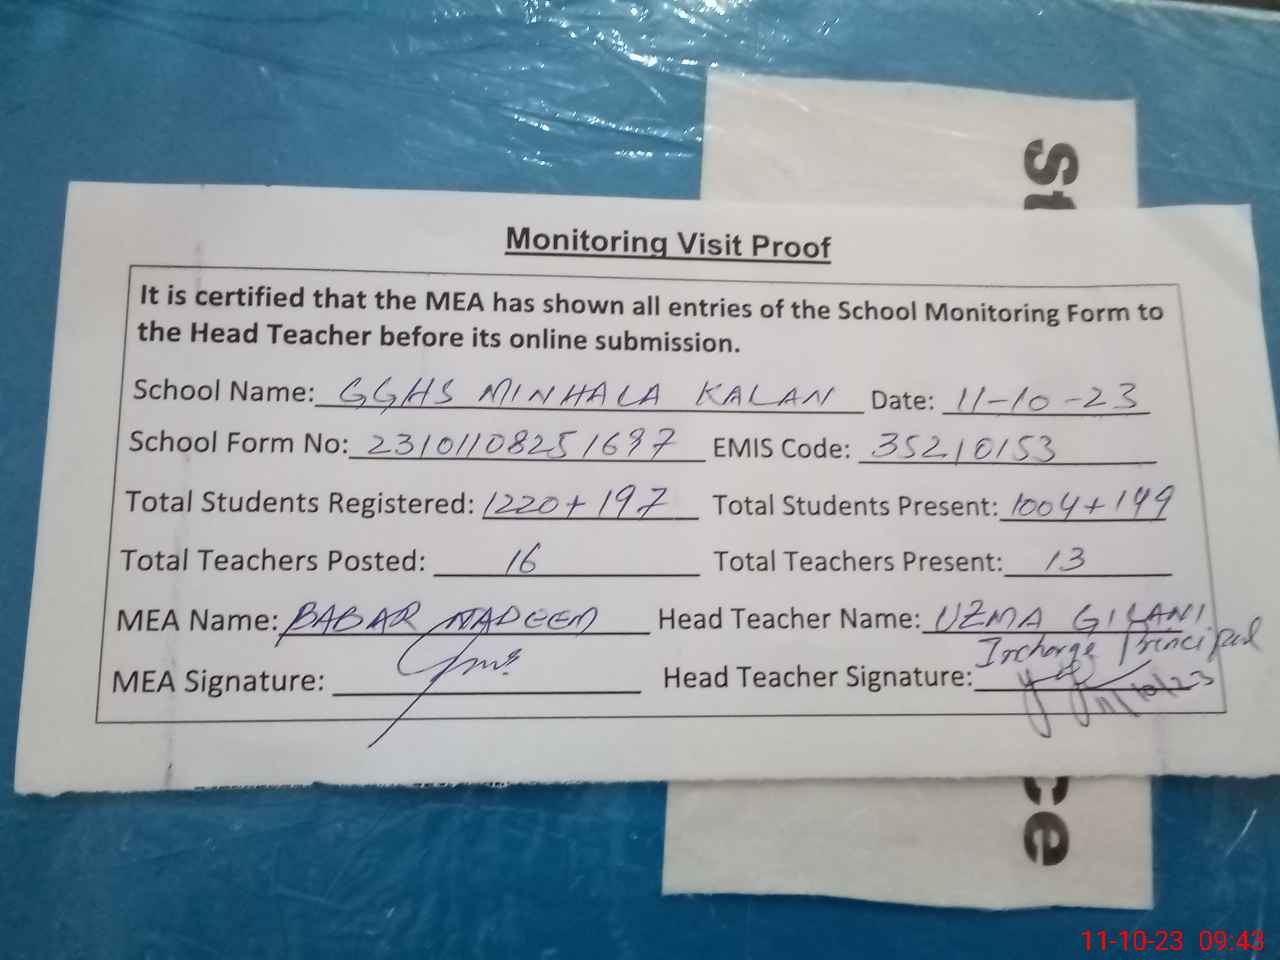 st
Monitoring Visit Proof
It is certified that the MEA has shown all entries of the School Monitoring Form to
the Head Teacher before its online submission.
School Name: GGHS MINHALA KALAN Date: 11-10-23
School Form No: 23101108251697 EMIS Code: 35210153
Total Students Registered: 1220+197 Total Students Present: 1004+149
Total Teachers Posted: 16 Total Teachers Present: 13
MEA Name: BABAR NADEEM Head Teacher Name: UZMA GILANI
Incharge Principal
MEA Signature: Head Teacher Signature:
11/10/23
ce
11-10-23 09:43